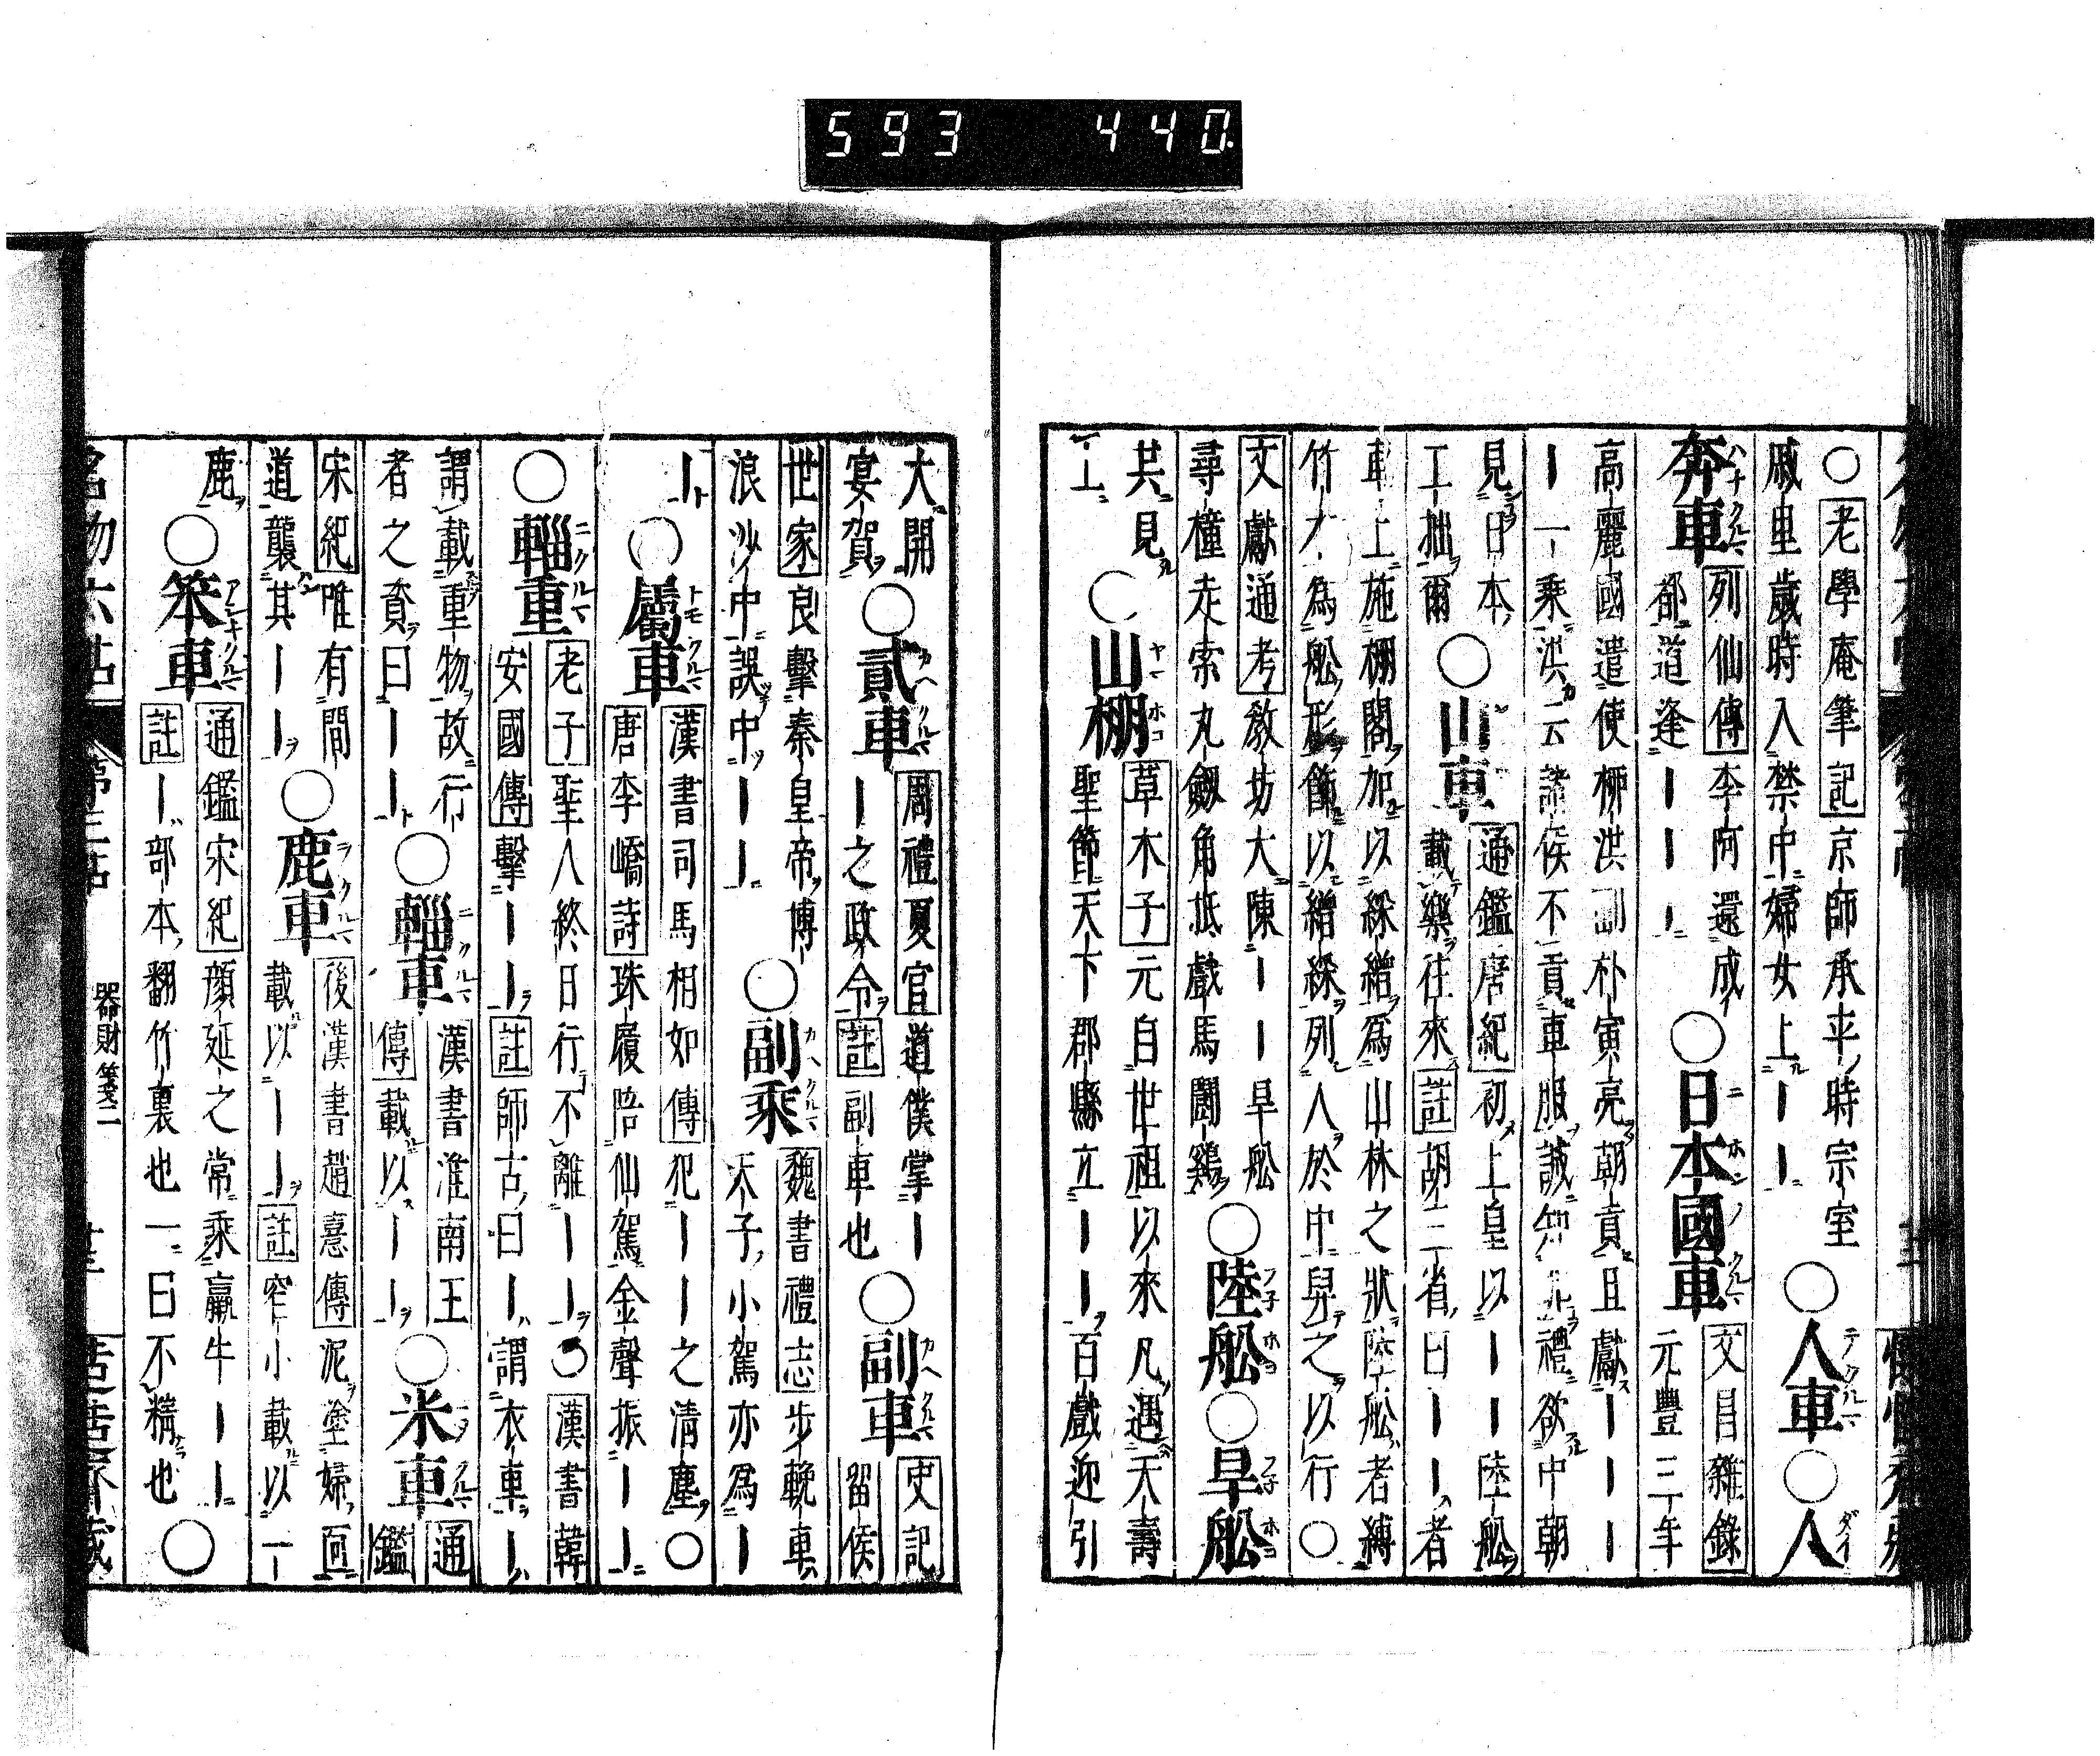 593 440
○老學庵筆記京師承平時宗室
戚里歲時入禁中婦女上||
○人車○人
奔車
列仙傳李阿還成
都道逢|||
○日本國車
文昌雜錄
元豐三年
高麗國遣使柳洪副朴寅亮朝貢且獻|||
|一乘洪云諸侯不貢車服誠知非禮欲中朝
見日本
工拙爾
○山車
通鑑唐紀初上皇以||陸舩
載樂往來註胡三省曰||者
車上施棚閣加以綵繒爲山林之狀陸舩者縛
竹木爲舩形飾以繒綵列人於中舁之以行○
文獻通考教坊大陳||旱舩
尋橦走索丸劔角抵戲馬鬪鷄
○陸舩○旱舩
共見
○山棚
草木子元自世祖以來凡遇天壽
聖節天下郡縣立||百戲迎引
大開
宴賀
○貳車
周禮夏官道僕掌|
|之政令註副車也
○副車
史記
留侯
世家良擊秦皇帝博
浪沙中誤中||
○副乘
魏書禮志步輓車
天子小駕亦爲|
|
○屬車
漢書司馬相如傳犯||之清塵○
唐李嶠詩珠履陪仙駕金聲振||
○輜重
老子聖人終日行不離||○漢書韓
安國傳擊||註師古曰|謂衣車|
謂載重物故行
者之資曰||
○輜車
漢書淮南王
傳載以||
○米車
通
鑑
宋紀唯有間
道襲其||
○鹿車
後漢書趙憙傳泥塗婦面
載以||註窄小載以一
鹿
○笨車
通鑑宋紀顔延之常乘羸牛||
註|部本翻竹裏也一曰不精也
○
名物六帖 第三帖 器財箋二